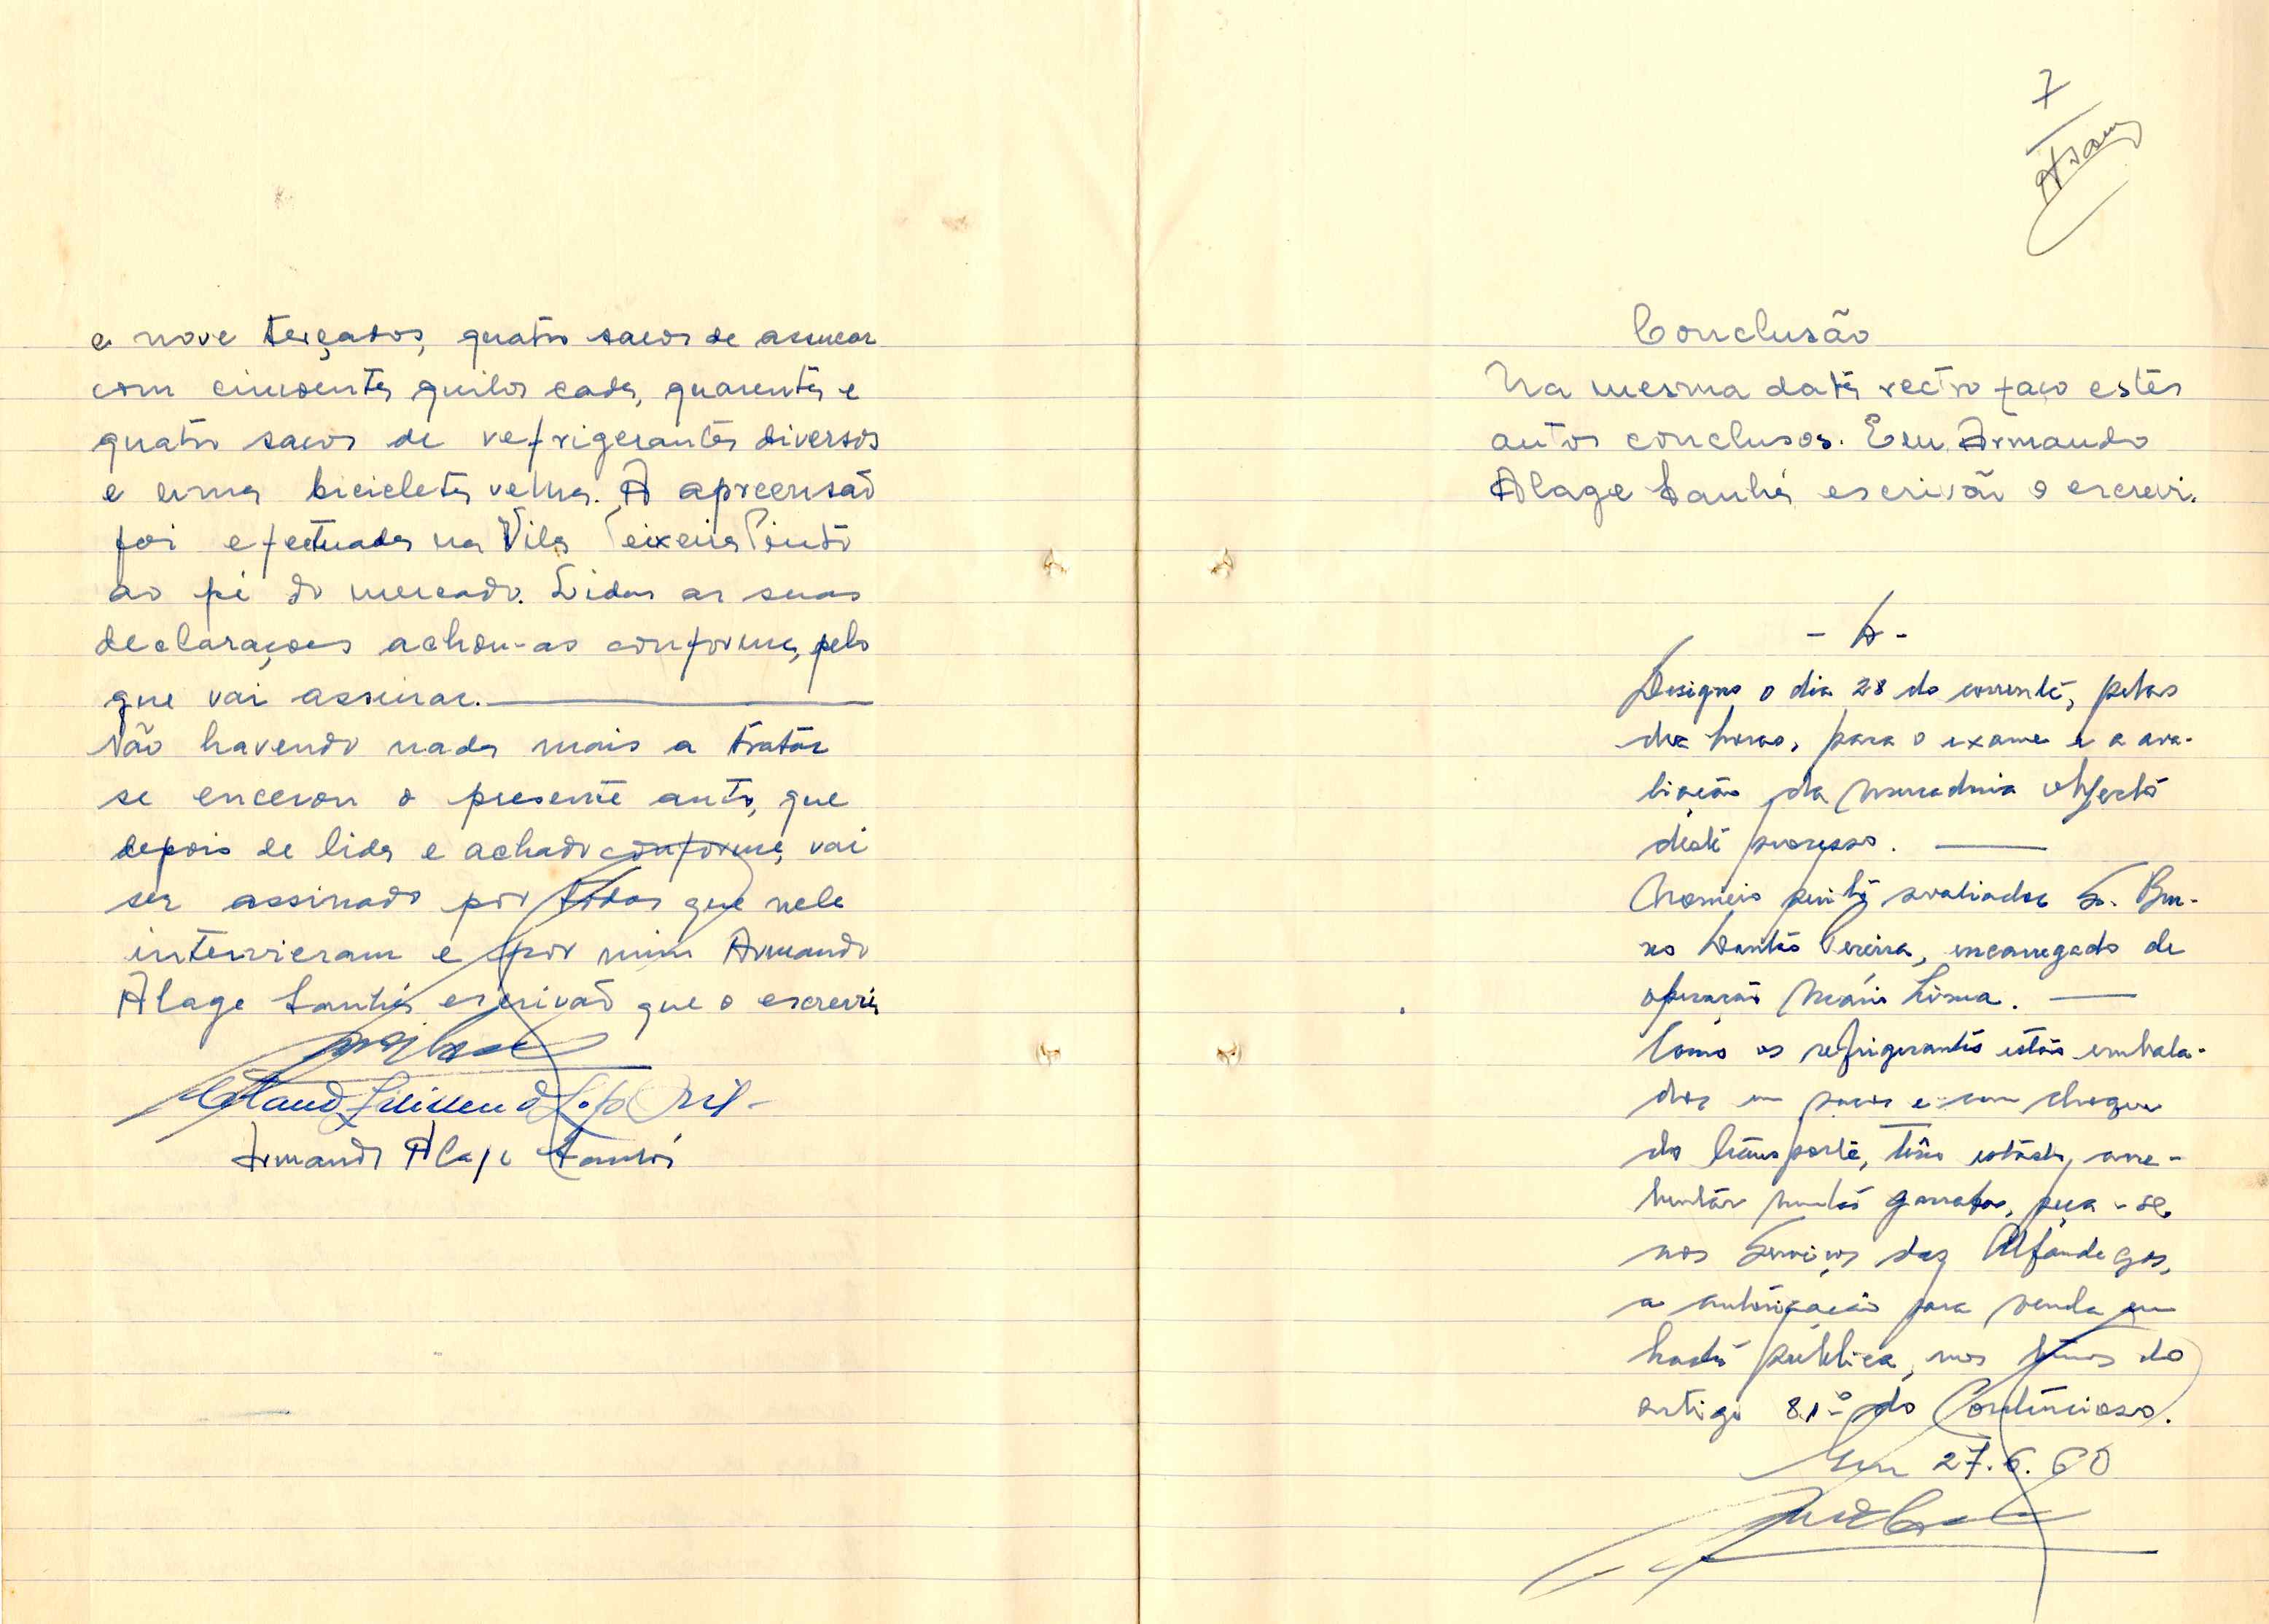 e nove terçados, quatro sacos de assucar
com cincoenta quilos cada, quarenta e
quatro sacos de refrigerantes diversos
e uma bicicleta velha. A apreensão
foi efectuada na Vila Teixeira Pinto
ao pé do mercado. Lidas as suas
declarações achou-as conforme, pelo
que vai assinar.
Não havendo nada mais a tratar
se encerou o presente auto, que
depois de lido e achado conforme, vai
ser assinado por todos que nele
intervieram e por mim Armando
Alage Sanhá escrivão que o escrevi
Armando Alage Sanhá
7
Conclusão
Na mesma data rectro faço estes
autos conclusos. Eu Armando
Alage Sanhá escrivão o escrevi.
Designo o dia 28 do corrente, pelas
dez horas, para o exame e a ava-
liação da mercadoria objecto
deste processo.
Nomeio perito avaliador Sr. Bru-
no Santos Pereira, encarregado de
operação Mário Lima.
Como os refrigerantes estão embala-
dos em sacos e com choques
do transporte, têm estado, arre-
bentar muitas garrafas, peça-se
aos Serviços das Alfândegas,
a autorização para venda em
hasta pública, nos termos do
artigo 81º do Contencioso.
Em 27.6.60